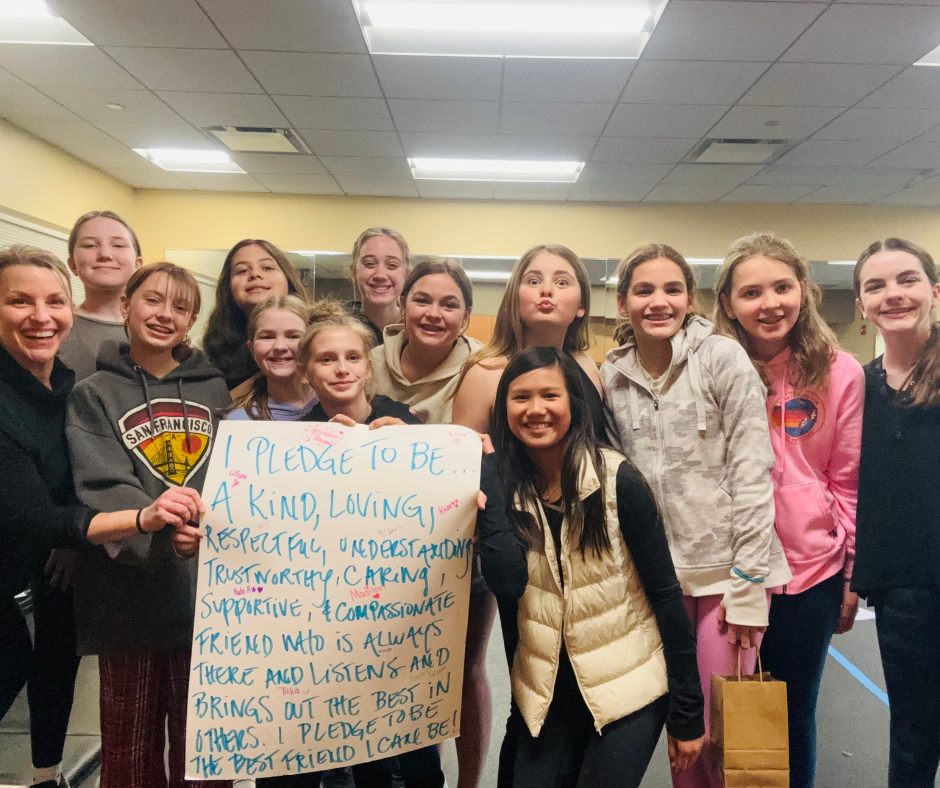 SAN FRANCISCO
I PLEDGE TO BE...
Lillian
A KIND, LOVING,
Kate
RESPECTFUL, UNDERSTANDING
TRUSTWORTHY, CARING,
Kate R
Madison
SUPPORTIVE, & COMPASSIONATE
FRIEND WHO IS ALWAYS
THERE AND LISTENS AND
Talia
BRINGS OUT THE BEST IN
OTHERS. I PLEDGE TO BE
THE BEST FRIEND I CAN BE!